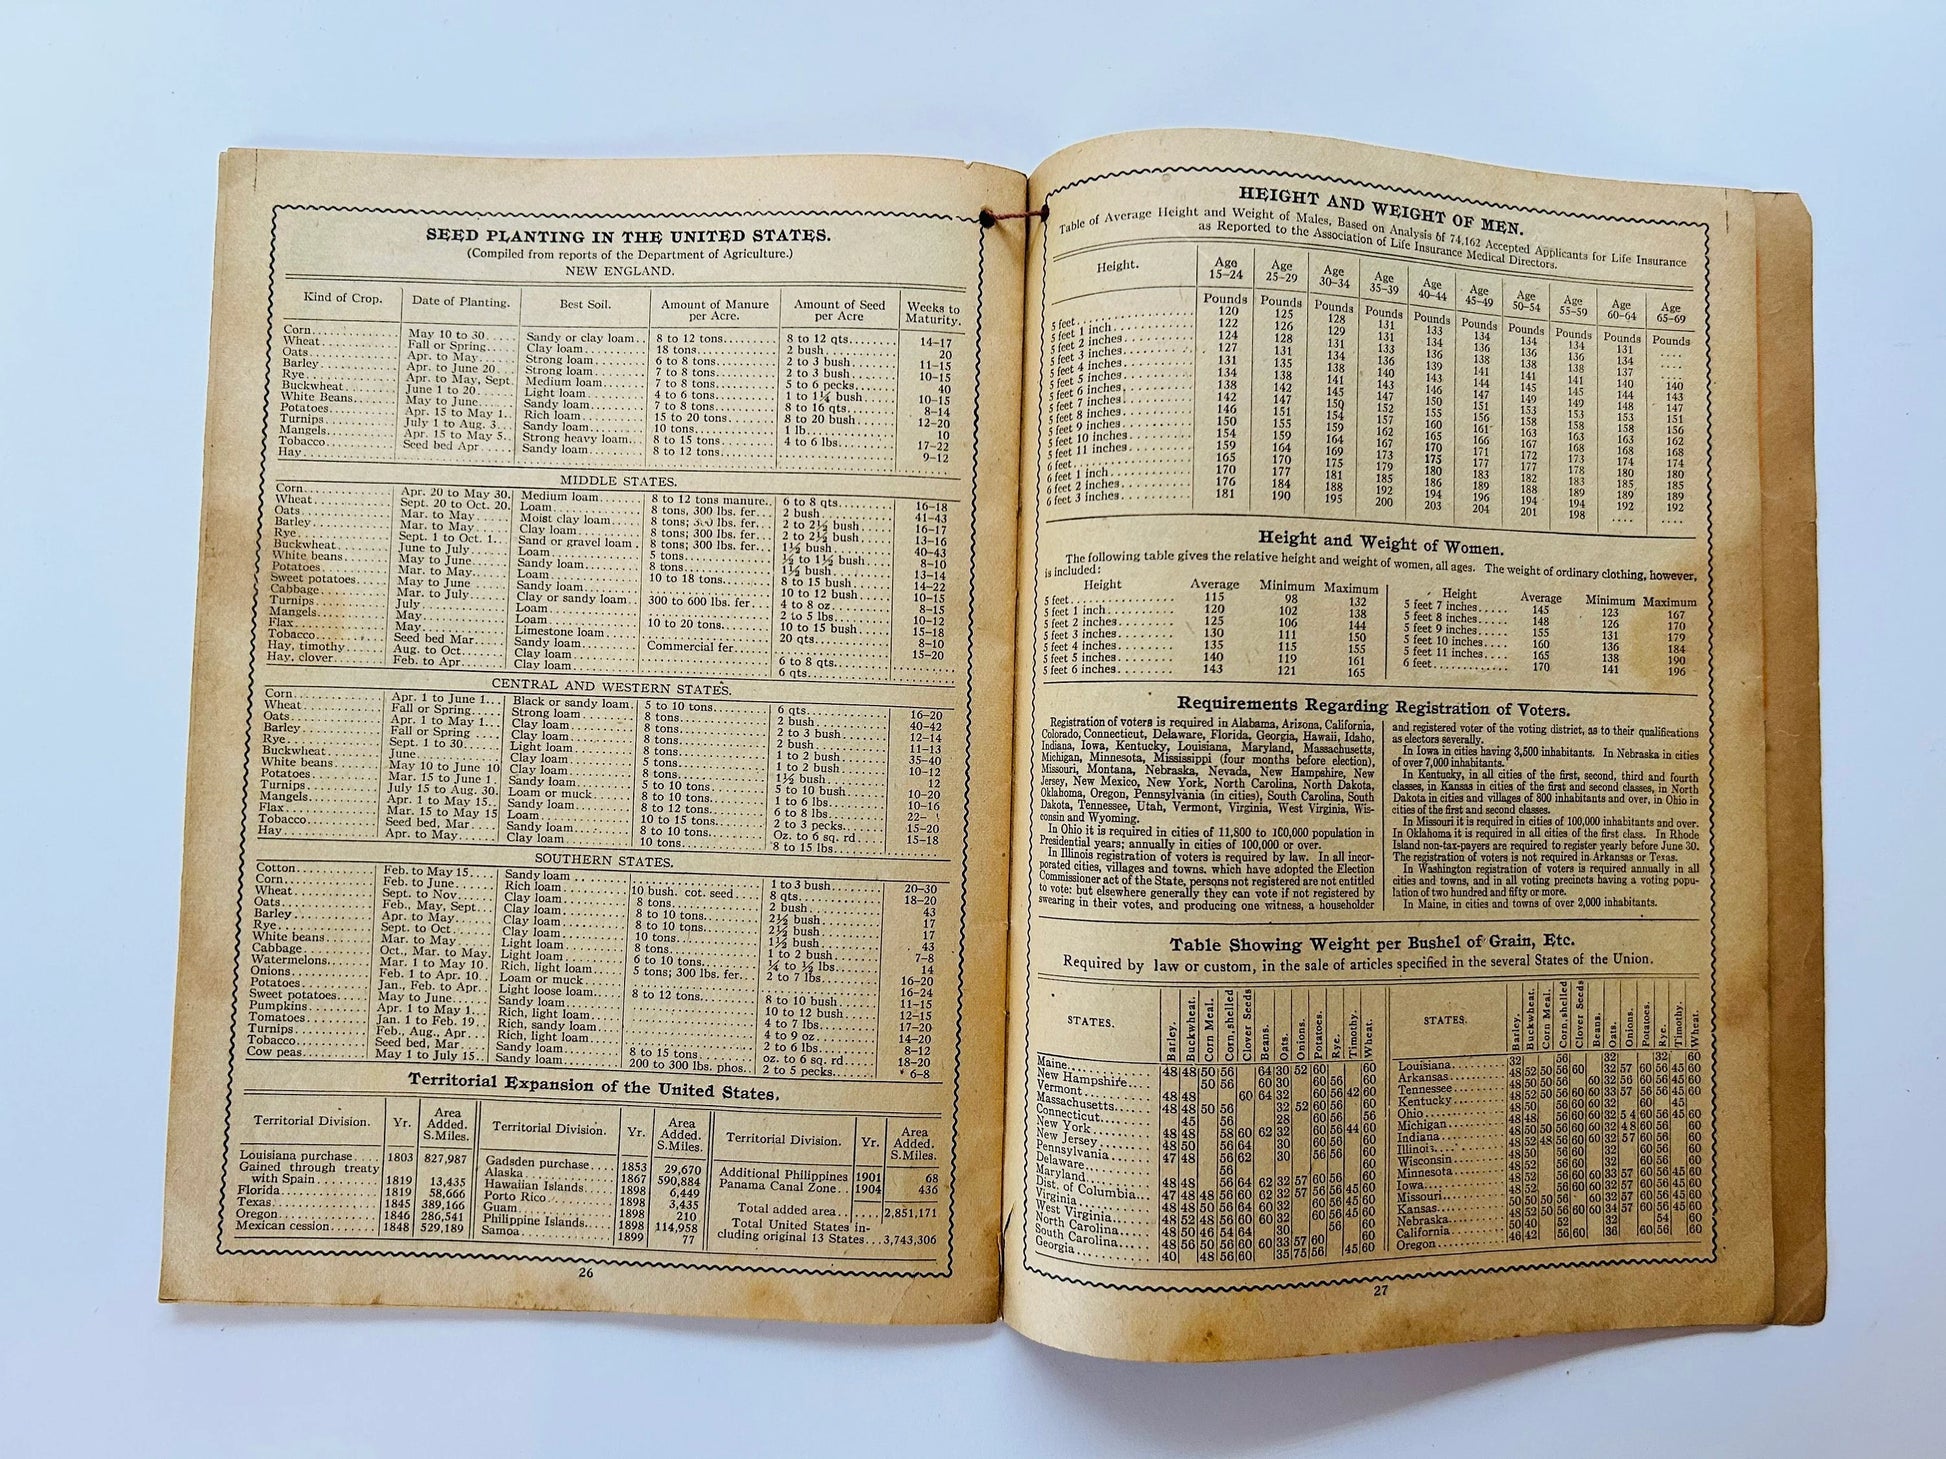 SEED PLANTING IN THE UNITED STATES.
(Compiled from reports of the Department of Agriculture.)
NEW ENGLAND.
Kind of Crop. Date of Planting. Best Soil. Amount of Manure per Acre. Amount of Seed per Acre Weeks to Maturity.
Corn May 10 to 30 Sandy or clay loam 8 to 12 tons 8 to 12 qts 14–17
Wheat Fall or Spring Clay loam 18 tons 2 bush 20
Oats Apr. to May Strong loam 6 to 8 tons 2 to 3 bush 11–15
Barley Apr. to June 20 Strong loam 7 to 8 tons 2 to 3 bush 10–15
Rye Apr. to May, Sept. Medium loam 7 to 8 tons 5 to 6 pecks 40
Buckwheat June 1 to 20 Light loam 4 to 6 tons 1 to 1¼ bush 10–15
White Beans May to June Sandy loam 7 to 8 tons 8 to 16 qts 8–14
Potatoes Apr. 15 to May 1 Rich loam 15 to 20 tons 8 to 20 bush 12–20
Turnips July 1 to Aug. 3 Sandy loam 10 tons 1 lb 10
Mangels Apr. 15 to May 5 Strong heavy loam 8 to 15 tons 4 to 6 lbs 17–22
Tobacco Seed bed Apr Sandy loam 8 to 12 tons 9–12
Hay
MIDDLE STATES.
Corn Apr. 20 to May 30. Medium loam 8 to 12 tons manure 6 to 8 qts 16–18
Wheat Sept. 20 to Oct. 20. Loam 8 tons, 300 lbs. fer 2 bush 41–43
Oats Mar. to May Moist clay loam 8 tons; 300 lbs. fer 2 to 2½ bush 16–17
Barley Mar. to May Clay loam 8 tons; 300 lbs. fer 2 to 2½ bush 13–16
Rye Sept. 1 to Oct. 1 Sand or gravel loam 8 tons; 300 lbs. fer 1½ bush 40–43
Buckwheat June to July Loam 5 tons ½ to 1½ bush 8–10
White beans May to June Sandy loam 1½ bush 13–14
Potatoes Mar. to May Loam 10 to 18 tons 8 to 15 bush 14–22
Sweet potatoes May to June Sandy loam 10 to 12 bush 10–15
Cabbage Mar. to July Clay or sandy loam 300 to 600 lbs. fer 4 to 8 oz 8–15
Turnips July Loam 2 to 5 lbs 10–12
Mangels May Loam 10 to 20 tons 10 to 15 bush 15–18
Flax May Limestone loam 20 qts 8–10
Tobacco Seed bed Mar Sandy loam Commercial fer 15–20
Hay, timothy Aug. to Oct Clay loam 6 to 8 qts
Hay, clover Feb. to Apr Clay loam 6 qts
CENTRAL AND WESTERN STATES.
Corn Apr. 1 to June 1 Black or sandy loam 5 to 10 tons 6 qts 16–20
Wheat Fall or Spring Strong loam 8 tons 2 bush 40–42
Oats Apr. 1 to May 1 Clay loam 8 tons 2 to 3 bush 12–14
Barley Fall or Spring Clay loam 8 tons 2 bush 11–13
Rye Sept. 1 to 30 Light loam 8 tons 1 to 2 bush 35–40
Buckwheat June Clay loam 5 tons 1 to 2 bush 10–12
White beans May 10 to June 10 Clay loam 8 tons 1½ bush 12
Potatoes Mar. 15 to June 1 Sandy loam 5 to 10 tons 5 to 10 bush 10–20
Turnips July 15 to Aug. 30. Loam or muck 8 to 10 tons 1 to 6 lbs 10–16
Mangels Apr. 1 to May 15 Sandy loam 8 to 12 tons 6 to 8 lbs 22–
Flax Mar. 15 to May 15 Loam 10 to 15 tons 2 to 3 pecks 15–20
Tobacco Seed bed, Mar Sandy loam 8 to 10 tons Oz. to 6 sq. rd 15–18
Hay Apr. to May Clay loam 10 tons 8 to 15 lbs
SOUTHERN STATES.
Cotton Feb. to May 15 Sandy loam 1 to 3 bush 20–30
Corn Feb. to June Rich loam 10 bush. cot. seed 8 qts 18–20
Wheat Sept. to Nov Clay loam 8 tons 2 bush 43
Oats Feb., May, Sept Clay loam 8 to 10 tons 2½ bush 17
Barley Apr. to May Clay loam 8 to 10 tons 2½ bush 17
Rye Sept. to Oct Clay loam 10 tons 1½ bush 43
White beans Mar. to May Light loam 8 tons 1 to 2 bush 7–8
Cabbage Oct., Mar. to May. Light loam 6 to 10 tons ¼ to ½ lbs 14
Watermelons Mar. 1 to May 10 Rich, light loam 5 tons; 300 lbs. fer 2 to 7 lbs 16–20
Onions Feb. 1 to Apr. 10 Loam or muck 16–24
Potatoes Jan., Feb. to Apr Light loose loam 8 to 12 tons 8 to 10 bush 11–15
Sweet potatoes May to June Sandy loam 10 to 12 bush 12–15
Pumpkins Apr. 1 to May 1 Rich, light loam 4 to 7 lbs 17–20
Tomatoes Jan. 1 to Feb. 19 Rich, sandy loam 4 to 9 oz 14–20
Turnips Feb., Aug., Apr Rich, light loam 2 to 6 lbs 8–12
Tobacco Seed bed, Mar Sandy loam 8 to 15 tons oz. to 6 sq. rd 18–20
Cow peas May 1 to July 15 Sandy loam 200 to 300 lbs. phos 2 to 5 pecks 6–8
Territorial Expansion of the United States.
Territorial Division. Yr. Area Added. S.Miles.
Louisiana purchase 1803 827,987
Gained through treaty with Spain 1819 13,435
Florida 1819 58,666
Texas 1845 389,166
Oregon 1846 286,541
Mexican cession 1848 529,189
Territorial Division. Yr. Area Added. S.Miles.
Gadsden purchase 1853 29,670
Alaska 1867 590,884
Hawaiian Islands 1898 6,449
Porto Rico 1898 3,435
Guam 1898 210
Philippine Islands 1898 114,958
Samoa 1899 77
Territorial Division. Yr. Area Added. S.Miles.
Additional Philippines 1901 68
Panama Canal Zone 1904 436
Total added area 2,851,171
Total United States including original 13 States 3,743,306
26
HEIGHT AND WEIGHT OF MEN.
Table of Average Height and Weight of Males, Based on Analysis of 74,162 Accepted Applicants for Life Insurance
as Reported to the Association of Life Insurance Medical Directors.
Height. Age 15–24 Age 25–29 Age 30–34 Age 35–39 Age 40–44 Age 45–49 Age 50–54 Age 55–59 Age 60–64 Age 65–69
Pounds Pounds Pounds Pounds Pounds Pounds Pounds Pounds Pounds Pounds
5 feet 120 125 128 131 133 134 134 134 131 ....
5 feet 1 inch 122 126 129 131 134 136 136 136 134 ....
5 feet 2 inches 124 128 131 133 136 138 138 138 137 ....
5 feet 3 inches 127 131 134 136 139 141 141 141 140 140
5 feet 4 inches 131 135 138 140 143 144 145 145 144 143
5 feet 5 inches 134 138 141 143 146 147 149 149 148 147
5 feet 6 inches 138 142 145 147 150 151 153 153 153 151
5 feet 7 inches 142 147 150 152 155 156 158 158 158 156
5 feet 8 inches 146 151 154 157 160 161 163 163 163 162
5 feet 9 inches 150 155 159 162 165 166 167 168 168 168
5 feet 10 inches 154 159 164 167 170 171 172 173 174 174
5 feet 11 inches 159 164 169 173 175 177 177 178 180 180
6 feet 165 170 175 179 180 183 182 183 185 185
6 feet 1 inch 170 177 181 185 186 189 188 189 189 189
6 feet 2 inches 176 184 188 192 194 196 194 194 192 192
6 feet 3 inches 181 190 195 200 203 204 201 198 .... ....
Height and Weight of Women.
The following table gives the relative height and weight of women, all ages. The weight of ordinary clothing, however,
is included:
Height Average Minimum Maximum
5 feet 115 98 132
5 feet 1 inch 120 102 138
5 feet 2 inches 125 106 144
5 feet 3 inches 130 111 150
5 feet 4 inches 135 115 155
5 feet 5 inches 140 119 161
5 feet 6 inches 143 121 165
Height Average Minimum Maximum
5 feet 7 inches 145 123 167
5 feet 8 inches 148 126 170
5 feet 9 inches 155 131 179
5 feet 10 inches 160 136 184
5 feet 11 inches 165 138 190
6 feet 170 141 196
Requirements Regarding Registration of Voters.
Registration of voters is required in Alabama, Arizona, California,
Colorado, Connecticut, Delaware, Florida, Georgia, Hawaii, Idaho,
Indiana, Iowa, Kentucky, Louisiana, Maryland, Massachusetts,
Michigan, Minnesota, Mississippi (four months before election),
Missouri, Montana, Nebraska, Nevada, New Hampshire, New
Jersey, New Mexico, New York, North Carolina, North Dakota,
Oklahoma, Oregon, Pennsylvania (in cities), South Carolina, South
Dakota, Tennessee, Utah, Vermont, Virginia, West Virginia, Wis-
consin and Wyoming.
In Ohio it is required in cities of 11,800 to 100,000 population in
Presidential years; annually in cities of 100,000 or over.
In Illinois registration of voters is required by law. In all incor-
porated cities, villages and towns. which have adopted the Election
Commissioner act of the State, persons not registered are not entitled
to vote: but elsewhere generally they can vote if not registered by
swearing in their votes, and producing one witness, a householder
and registered voter of the voting district, as to their qualifications
as electors severally.
In Iowa in cities having 3,500 inhabitants. In Nebraska in cities
of over 7,000 inhabitants.
In Kentucky, in all cities of the first, second, third and fourth
classes, in Kansas in cities of the first and second classes, in North
Dakota in cities and villages of 800 inhabitants and over, in Ohio in
cities of the first and second classes.
In Missouri it is required in cities of 100,000 inhabitants and over.
In Oklahoma it is required in all cities of the first class. In Rhode
Island non-tax-payers are required to register yearly before June 30.
The registration of voters is not required in Arkansas or Texas.
In Washington registration of voters is required annually in all
cities and towns, and in all voting precincts having a voting popu-
lation of two hundred and fifty or more.
In Maine, in cities and towns of over 2,000 inhabitants.
Table Showing Weight per Bushel of Grain, Etc.
Required by law or custom, in the sale of articles specified in the several States of the Union.
STATES. Barley. Buckwheat. Corn Meal. Corn, shelled Clover Seeds Beans. Oats. Onions. Potatoes. Rye. Timothy. Wheat.
Maine
New Hampshire
Vermont
Massachusetts
Connecticut
New York
New Jersey
Pennsylvania
Delaware
Maryland
Dist. of Columbia
Virginia
West Virginia
North Carolina
South Carolina
Georgia
STATES. Barley. Buckwheat. Corn Meal. Corn, shelled Clover Seeds Beans. Oats. Onions. Potatoes. Rye. Timothy. Wheat.
Louisiana
Arkansas
Tennessee
Kentucky
Ohio
Michigan
Indiana
Illinois
Wisconsin
Minnesota
Iowa
Missouri
Kansas
Nebraska
California
Oregon
27